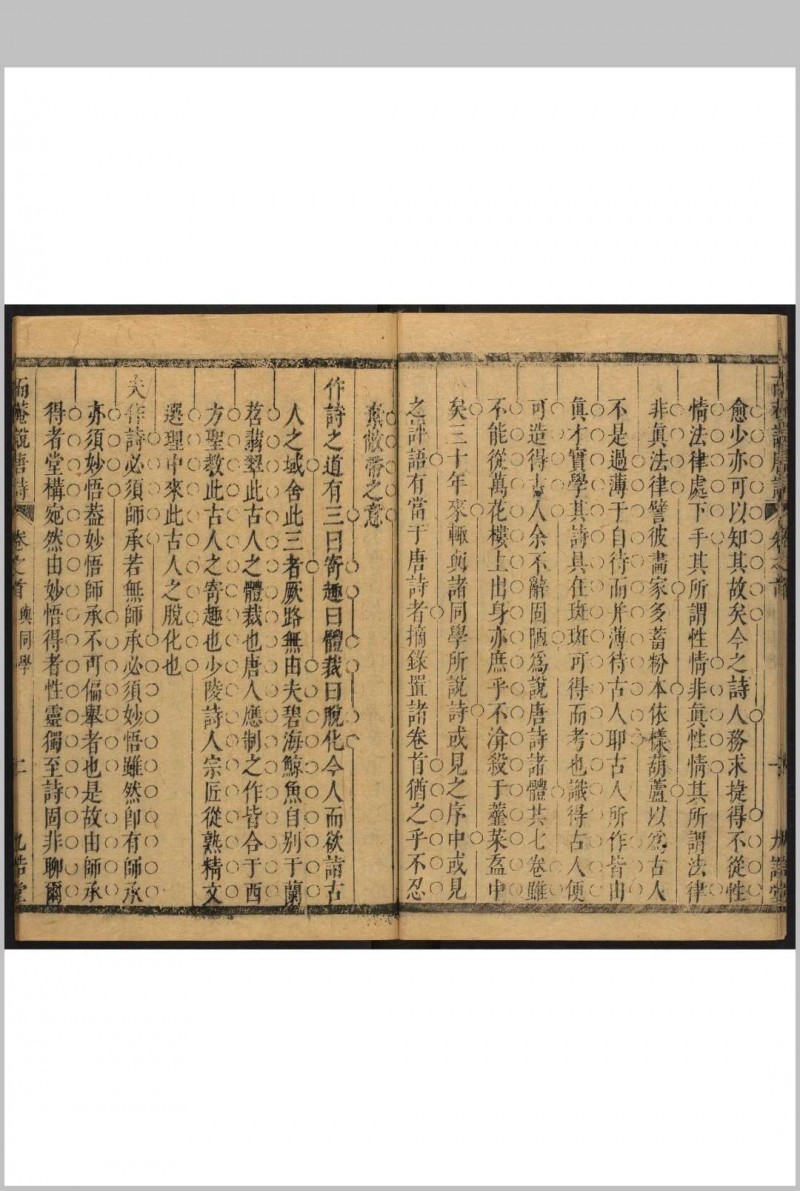 愈少亦可以知其故矣今之詩人務求捷得不從性
情法律處下手其所謂性情非眞性情其所謂法律
非眞法律譬彼畵家多蓄粉本依樣葫蘆以爲古人
不是過薄于自待而并薄待古人耶古人所作皆由
眞才實學其詩具在斑斑可得而考也識得古人便
可造得古人余不辭固陋爲說唐詩諸體共七卷雖
不能從萬花樓上出身亦庶乎不渰殺于虀菜瓮中
矣三十年來輙與諸同學所說詩或見之序中或見
之評語有當于唐詩者摘錄置諸卷首猶之乎不忍
棄敝帚之意
作詩之道有三曰寄趣曰體裁曰脫化今人而欲詣古
人之域舍此三者厥路無由夫碧海鯨魚自别于蘭
苕翡翠此古人之體裁也唐人應制之作皆合于西
方聖教此古人之寄趣也少陵詩人宗匠從熟精文
選理中來此古人之脫化也
夫作詩必須師承若無師承必須妙悟雖然卽有師承
亦須妙悟葢妙悟師承不可偏舉者也是故由師承
得者堂構宛然由妙悟得者性靈獨至詩固非聊爾
而菴說唐詩 卷之首 與同學 二 九誥堂